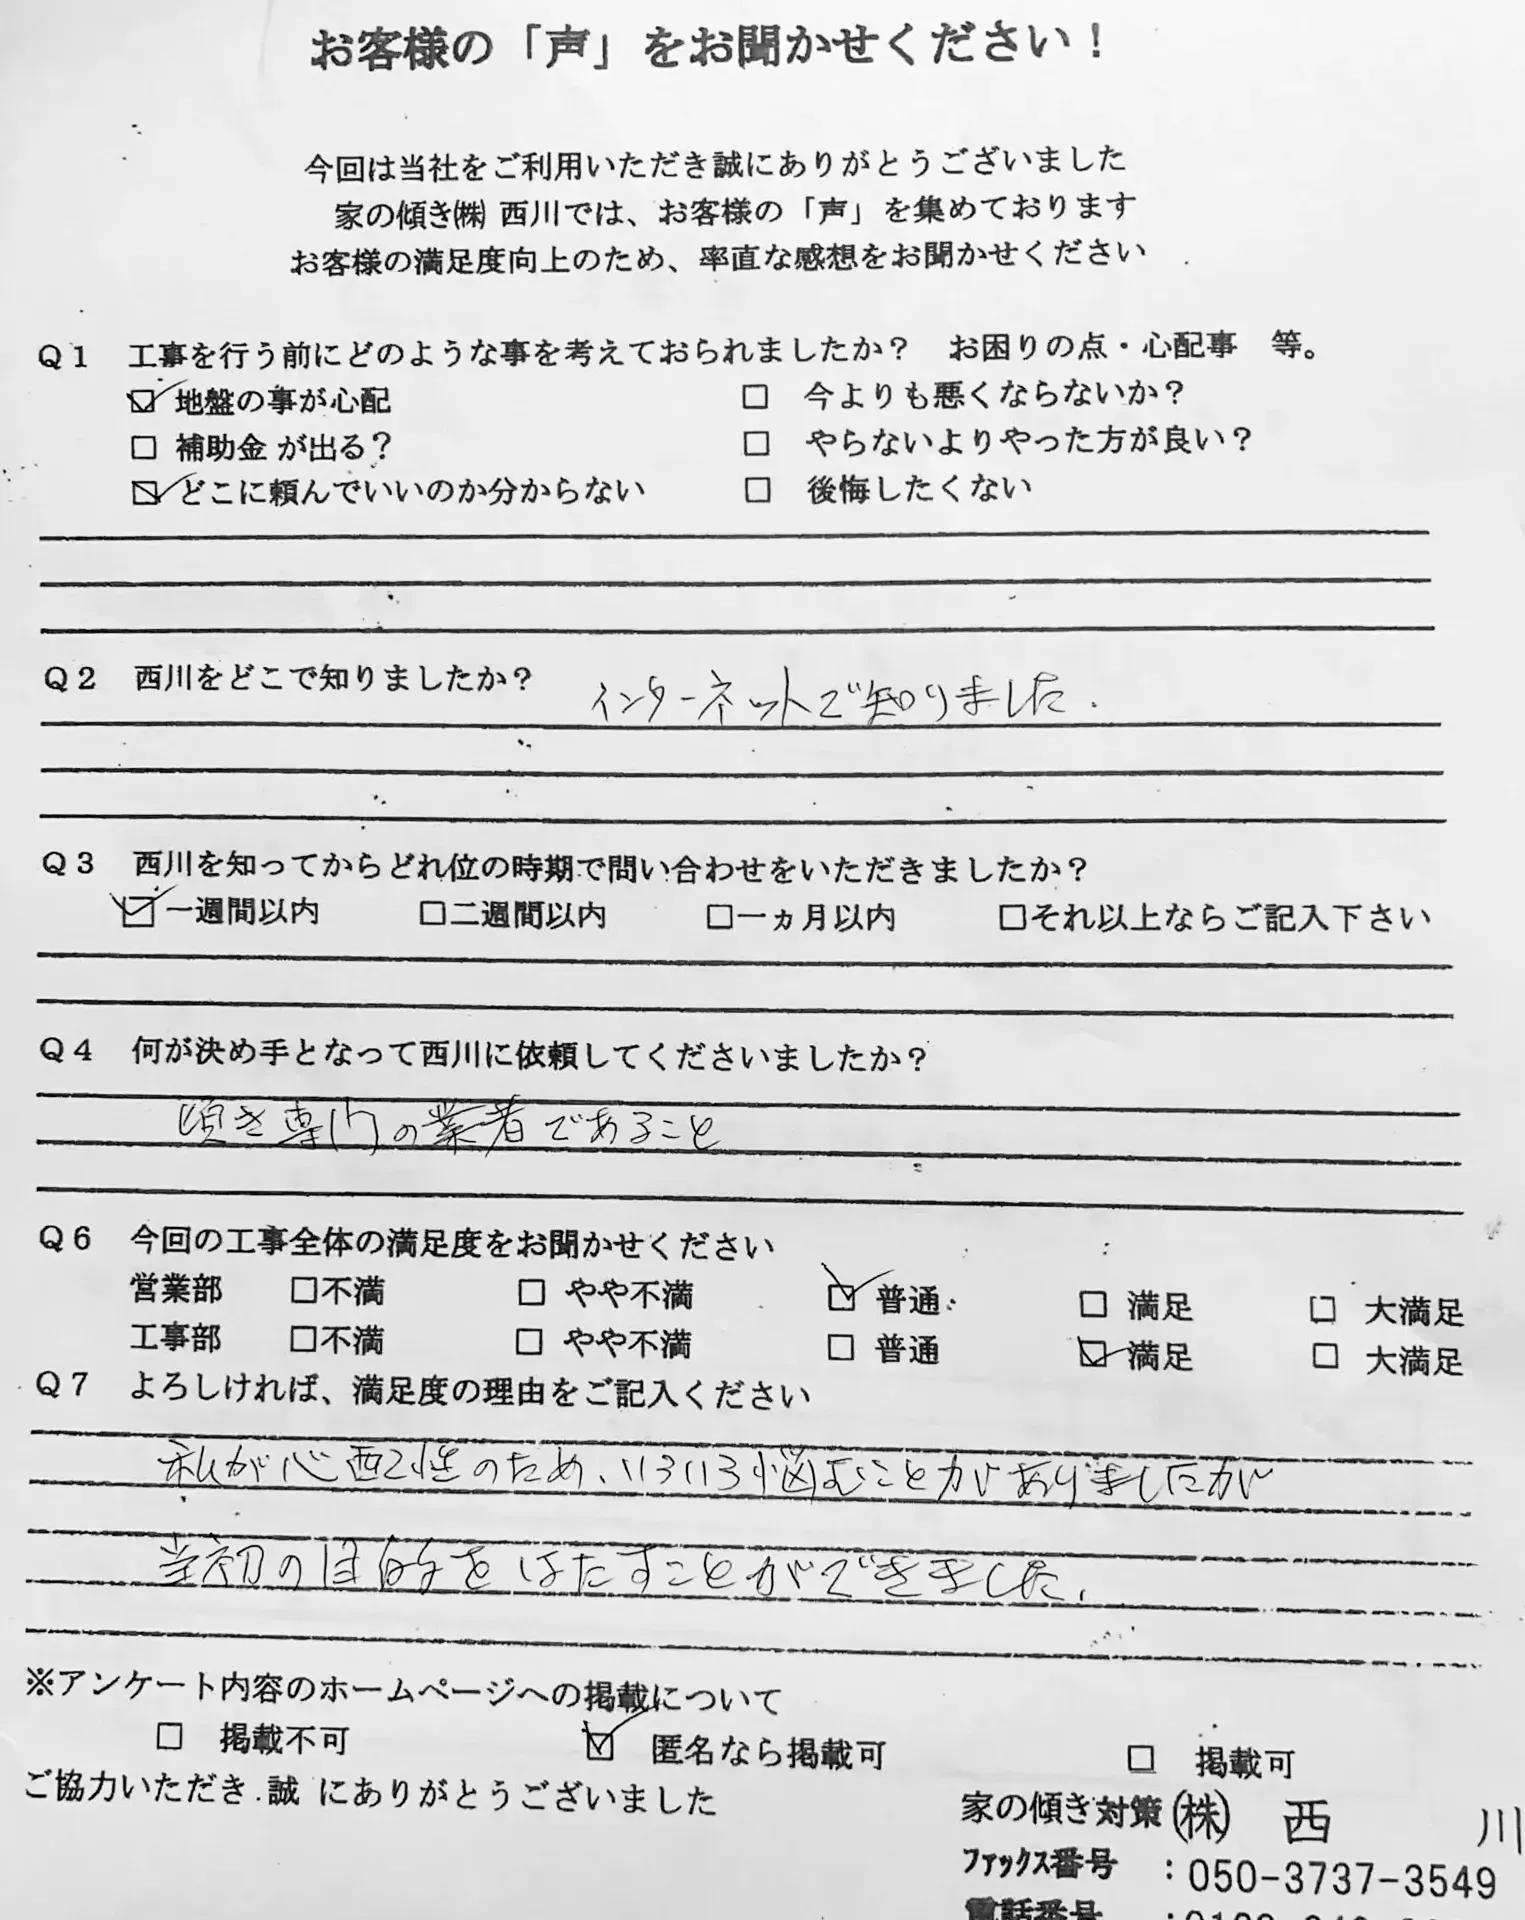 お客様の「声」をお聞かせください！
今回は当社をご利用いただき誠にありがとうございました
家の傾き㈱ 西川では、お客様の「声」を集めております
お客様の満足度向上のため、率直な感想をお聞かせください
Q1 工事を行う前にどのような事を考えておられましたか？ お困りの点・心配事 等。
☑ 地盤の事が心配 □ 今よりも悪くならないか？
□ 補助金が出る？ □ やらないよりやった方が良い？
☑ どこに頼んでいいのか分からない □ 後悔したくない
Q2 西川をどこで知りましたか？ インターネットで知りました.
Q3 西川を知ってからどれ位の時期で問い合わせをいただきましたか？
☑一週間以内 □二週間以内 □一ヵ月以内 □それ以上ならご記入下さい
Q4 何が決め手となって西川に依頼してくださいましたか？
傾き専門の業者であること
Q6 今回の工事全体の満足度をお聞かせください
営業部 □不満 □ やや不満 ☑ 普通 □ 満足 □ 大満足
工事部 □不満 □ やや不満 □ 普通 ☑ 満足 □ 大満足
Q7 よろしければ、満足度の理由をご記入ください
私が心配性のため、いろいろ悩むことがありましたが
当初の目的をはたすことができました.
※アンケート内容のホームページへの掲載について
□ 掲載不可 ☑ 匿名なら掲載可 □ 掲載可
ご協力いただき 誠 にありがとうございました
家の傾き対策㈱ 西 川
ﾌｧｯｸｽ番号 ：050-3737-3549
電話番号